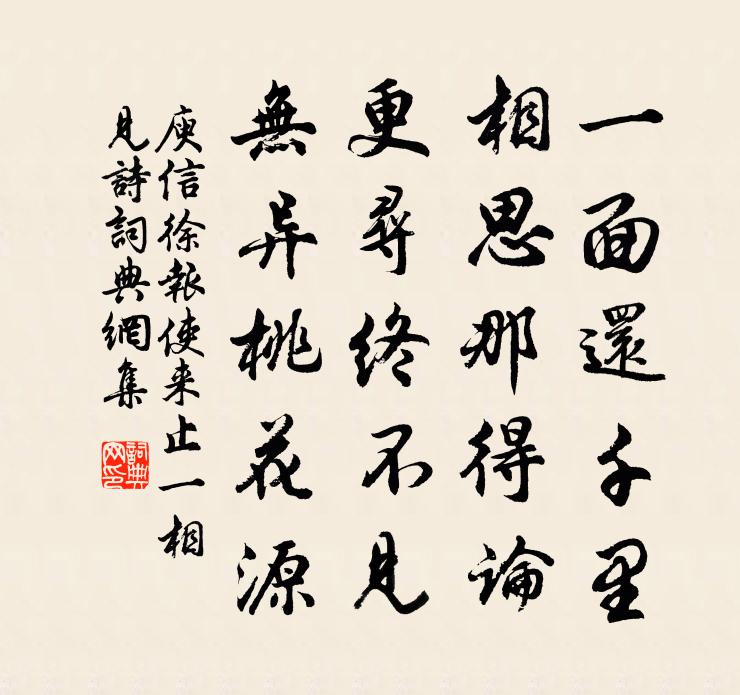 一面還千里
相思那得論
更尋終不見
無异桃花源
庾信徐報使来止一相
見詩詞典網集
詞典
网印